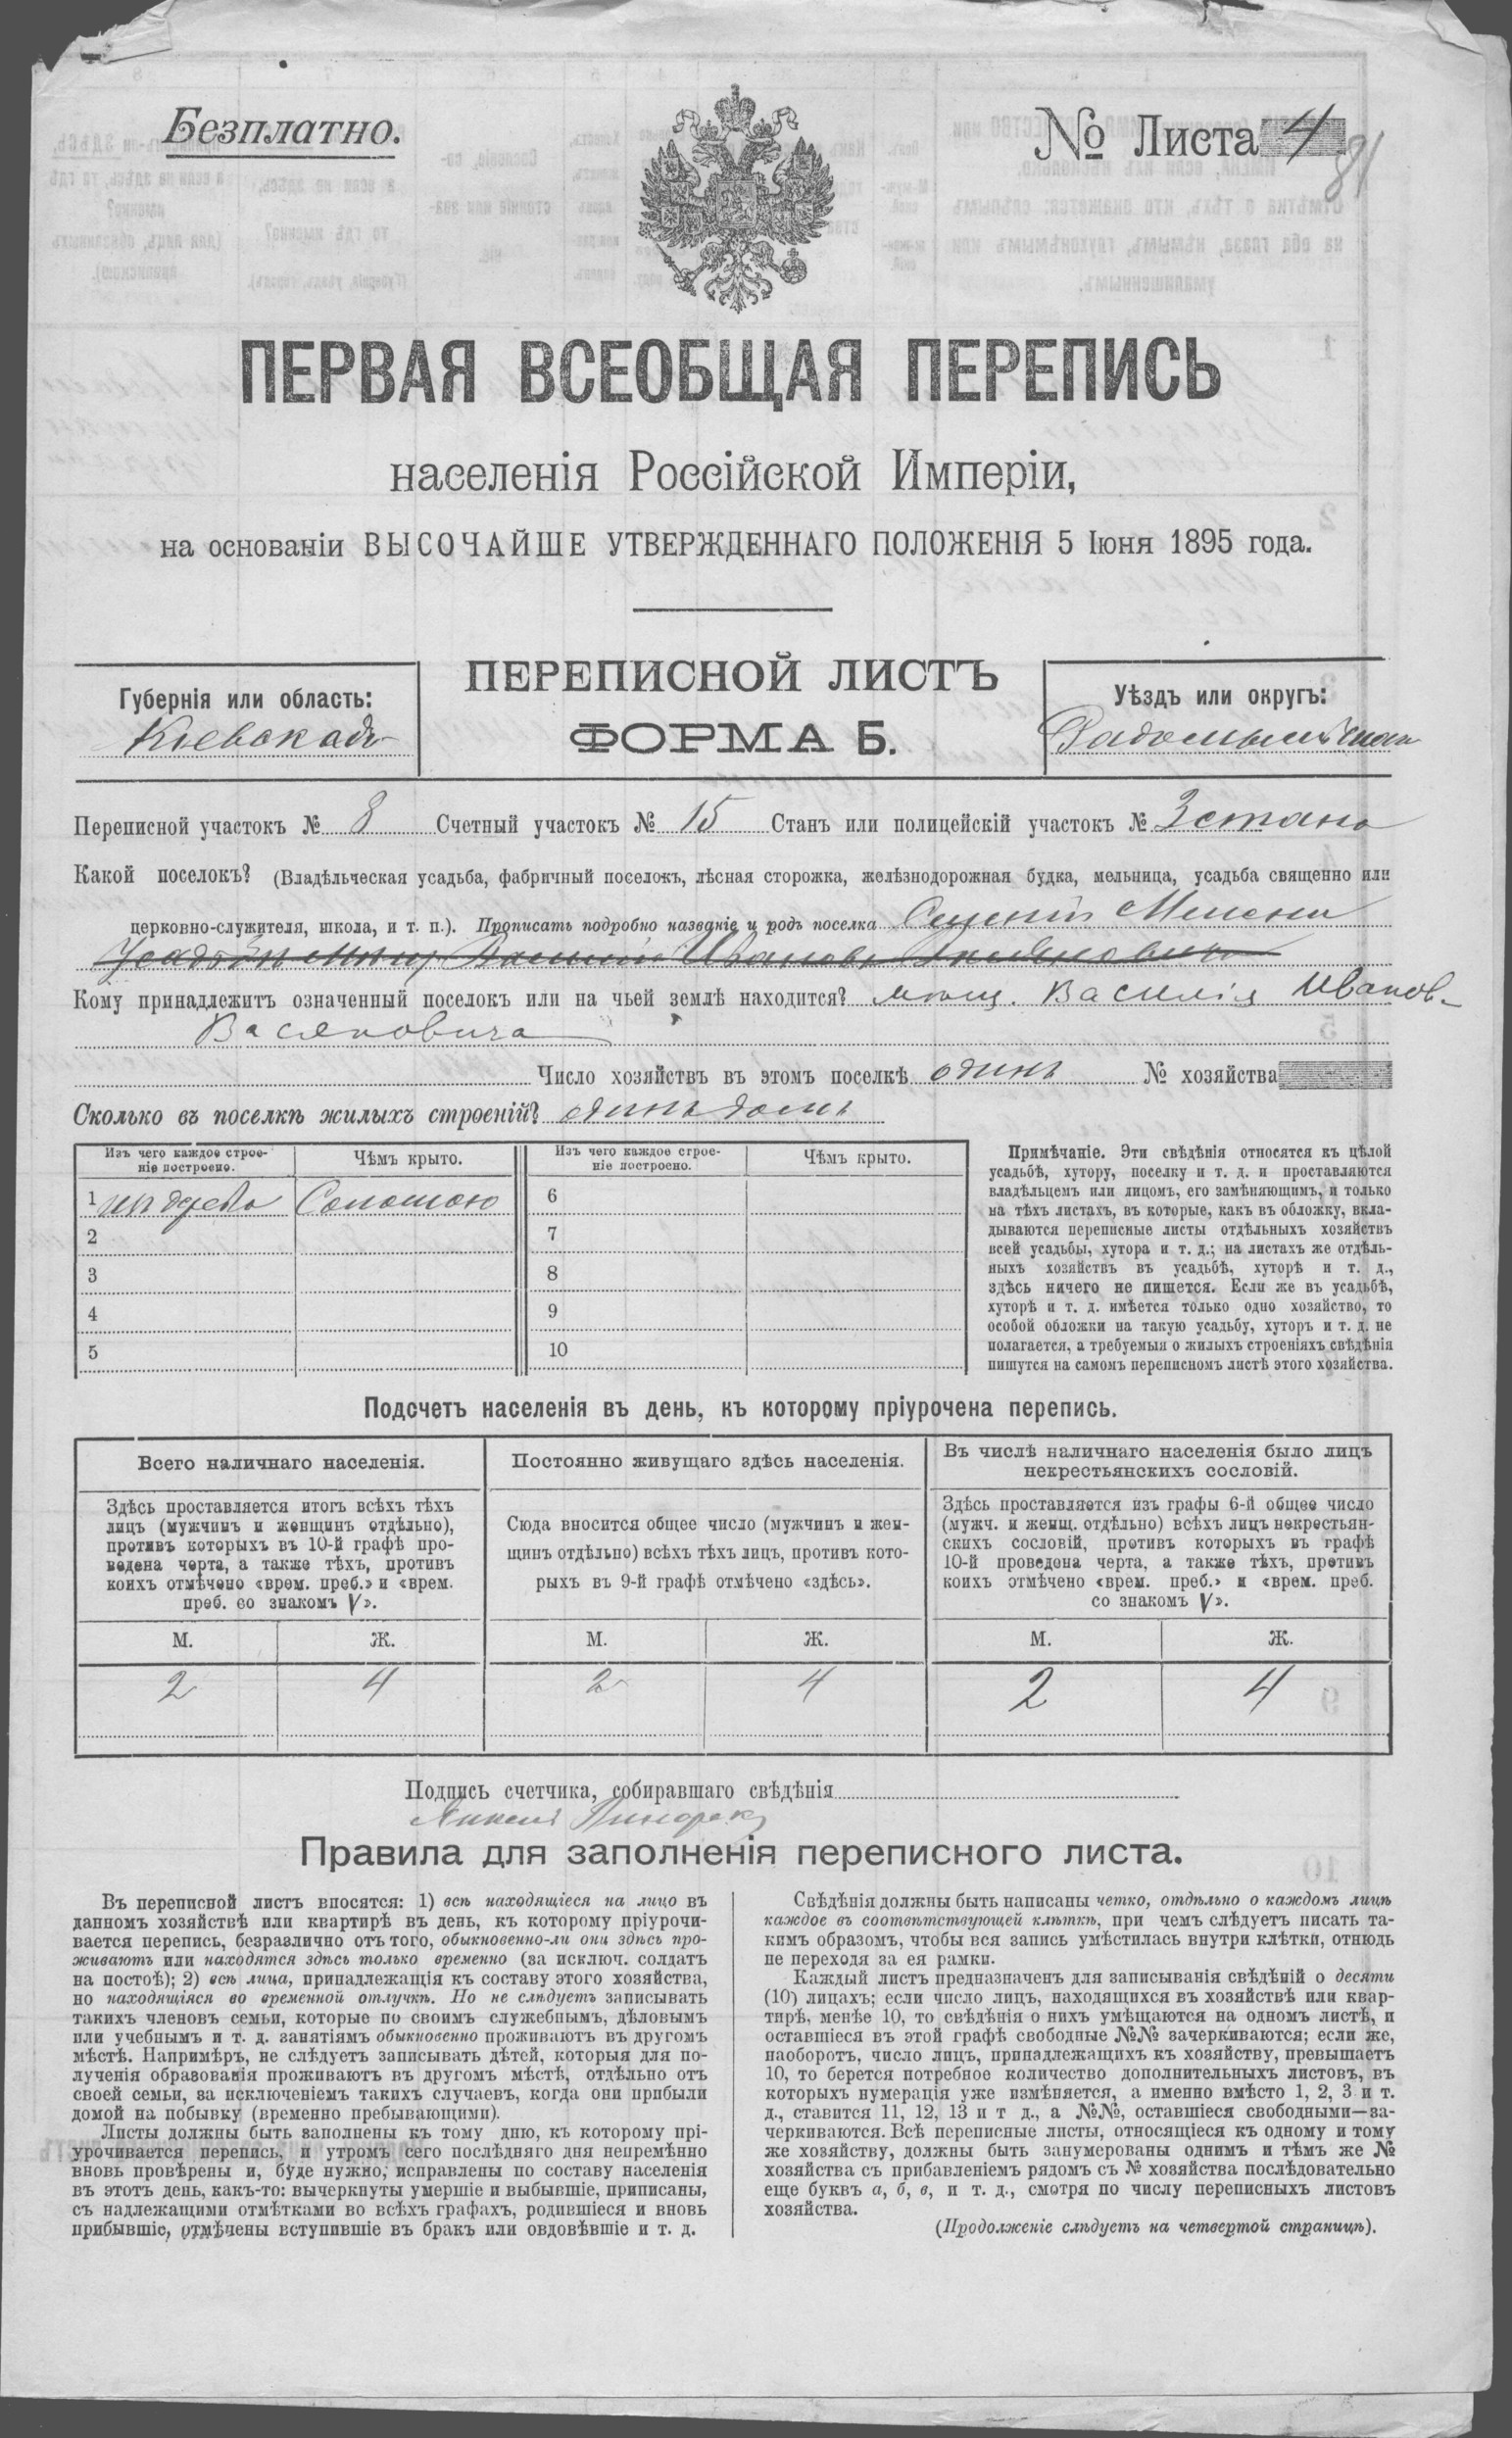 Безплатно.
№ Листа 4
81
ПЕРВАЯ ВСЕОБЩАЯ ПЕРЕПИСЬ
населенія Россійской Имперіи,
на основаніи ВЫСОЧАЙШЕ УТВЕРЖДЕННАГО ПОЛОЖЕНІЯ 5 Іюня 1895 года.
ПЕРЕПИСНОЙ ЛИСТЪ
ФОРМА Б.
Губернія или область:
Кіевская
Уѣздъ или округъ:
Радомысльскій
Переписной участокъ № 8 Счетный участокъ № 15 Станъ или полицейскій участокъ № 3 стана
Какой поселокъ? (Владѣльческая усадьба, фабричный поселокъ, лѣсная сторожка, желѣзнодорожная будка, мельница, усадьба священно или
церковно-служителя, школа, и т. п.). Прописать подробно названіе и родъ поселка
Кому принадлежитъ означенный поселокъ или на чьей землѣ находится? мѣщ. Василія Иванов.
Васяновича
Число хозяйствъ въ этомъ поселкѣ одинъ № хозяйства
Сколько въ поселкѣ жилыхъ строеній? одинъ домъ
Изъ чего каждое строе-
ніе построено.
Чѣмъ крыто.
Изъ чего каждое строе-
ніе построено.
Чѣмъ крыто.
1 изъ дерева Соломою 6
2 7
3 8
4 9
5 10
Примѣчаніе. Эти свѣдѣнія относятся къ цѣлой
усадьбѣ, хутору, поселку и т. д. и проставляются
владѣльцемъ или лицомъ, его замѣняющимъ, и только
на тѣхъ листахъ, въ которые, какъ въ обложку, вкла-
дываются переписные листы отдѣльныхъ хозяйствъ
всей усадьбы, хутора и т. д.; на листахъ же отдѣль-
ныхъ хозяйствъ въ усадьбѣ, хуторѣ и т. д.,
здѣсь ничего не пишется. Если же въ усадьбѣ,
хуторѣ и т. д. имѣется только одно хозяйство, то
особой обложки на такую усадьбу, хуторъ и т. д. не
полагается, а требуемыя о жилыхъ строеніяхъ свѣдѣнія
пишутся на самомъ переписномъ листѣ этого хозяйства.
Подсчетъ населенія въ день, къ которому пріурочена перепись.
Всего наличнаго населенія.
Здѣсь проставляется итогъ всѣхъ тѣхъ
лицъ (мужчинъ и женщинъ отдѣльно),
противъ которыхъ въ 10-й графѣ про-
ведена черта, а также тѣхъ, противъ
коихъ отмѣчено «врем. преб.» и «врем.
преб. со знакомъ V».
Постоянно живущаго здѣсь населенія.
Сюда вносится общее число (мужчинъ и жен-
щинъ отдѣльно) всѣхъ тѣхъ лицъ, противъ кото-
рыхъ въ 9-й графѣ отмѣчено «здѣсь».
Въ числѣ наличнаго населенія было лицъ
некрестьянскихъ сословій.
Здѣсь проставляется изъ графы 6-й общее число
(мужч. и женщ. отдѣльно) всѣхъ лицъ некрестьян-
скихъ сословій, противъ которыхъ въ графѣ
10-й проведена черта, а также тѣхъ, противъ
коихъ отмѣчено «врем. преб.» и «врем. преб.
со знакомъ V».
М. Ж. М. Ж. М. Ж.
2 4 2 4 2 4
Подпись счетчика, собиравшаго свѣдѣнія
Правила для заполненія переписного листа.
Въ переписной листъ вносятся: 1) всѣ находящіеся на лицо въ
данномъ хозяйствѣ или квартирѣ въ день, къ которому пріурочи-
вается перепись, безразлично отъ того, обыкновенно-ли они здѣсь про-
живаютъ или находятся здѣсь только временно (за исключ. солдатъ
на постоѣ); 2) всѣ лица, принадлежащія къ составу этого хозяйства,
но находящіяся во временной отлучкѣ. Но не слѣдуетъ записывать
такихъ членовъ семьи, которые по своимъ служебнымъ, дѣловымъ
или учебнымъ и т. д. занятіямъ обыкновенно проживаютъ въ другомъ
мѣстѣ. Напримѣръ, не слѣдуетъ записывать дѣтей, которыя для по-
лученія образованія проживаютъ въ другомъ мѣстѣ, отдѣльно отъ
своей семьи, за исключеніемъ такихъ случаевъ, когда они прибыли
домой на побывку (временно пребывающими).
Листы должны быть заполнены къ тому дню, къ которому прі-
урочивается перепись, и утромъ сего послѣдняго дня непремѣнно
вновь провѣрены и, буде нужно, исправлены по составу населенія
въ этотъ день, какъ-то: вычеркнуты умершіе и выбывшіе, приписаны,
съ надлежащими отмѣтками во всѣхъ графахъ, родившіеся и вновь
прибывшіе, отмѣчены вступившіе въ бракъ или овдовѣвшіе и т. д.
Свѣдѣнія должны быть написаны четко, отдѣльно о каждомъ лицѣ
каждое въ соотвѣтствующей клѣткѣ, при чемъ слѣдуетъ писать та-
кимъ образомъ, чтобы вся запись умѣстилась внутри клѣтки, отнюдь
не переходя за ея рамки.
Каждый листъ предназначенъ для записыванія свѣдѣній о десяти
(10) лицахъ; если число лицъ, находящихся въ хозяйствѣ или квар-
тирѣ, менѣе 10, то свѣдѣнія о нихъ умѣщаются на одномъ листѣ, и
оставшіеся въ этой графѣ свободные №№ зачеркиваются; если же,
наоборотъ, число лицъ, принадлежащихъ къ хозяйству, превышаетъ
10, то берется потребное количество дополнительныхъ листовъ, въ
которыхъ нумерація уже измѣняется, а именно вмѣсто 1, 2, 3 и т.
д., ставится 11, 12, 13 и т д., а №№, оставшіеся свободными—за-
черкиваются. Всѣ переписные листы, относящіеся къ одному и тому
же хозяйству, должны быть занумерованы однимъ и тѣмъ же №
хозяйства съ прибавленіемъ рядомъ съ № хозяйства послѣдовательно
еще буквъ а, б, в, и т. д., смотря по числу переписныхъ листовъ
хозяйства.
(Продолженіе слѣдуетъ на четвертой страницѣ).